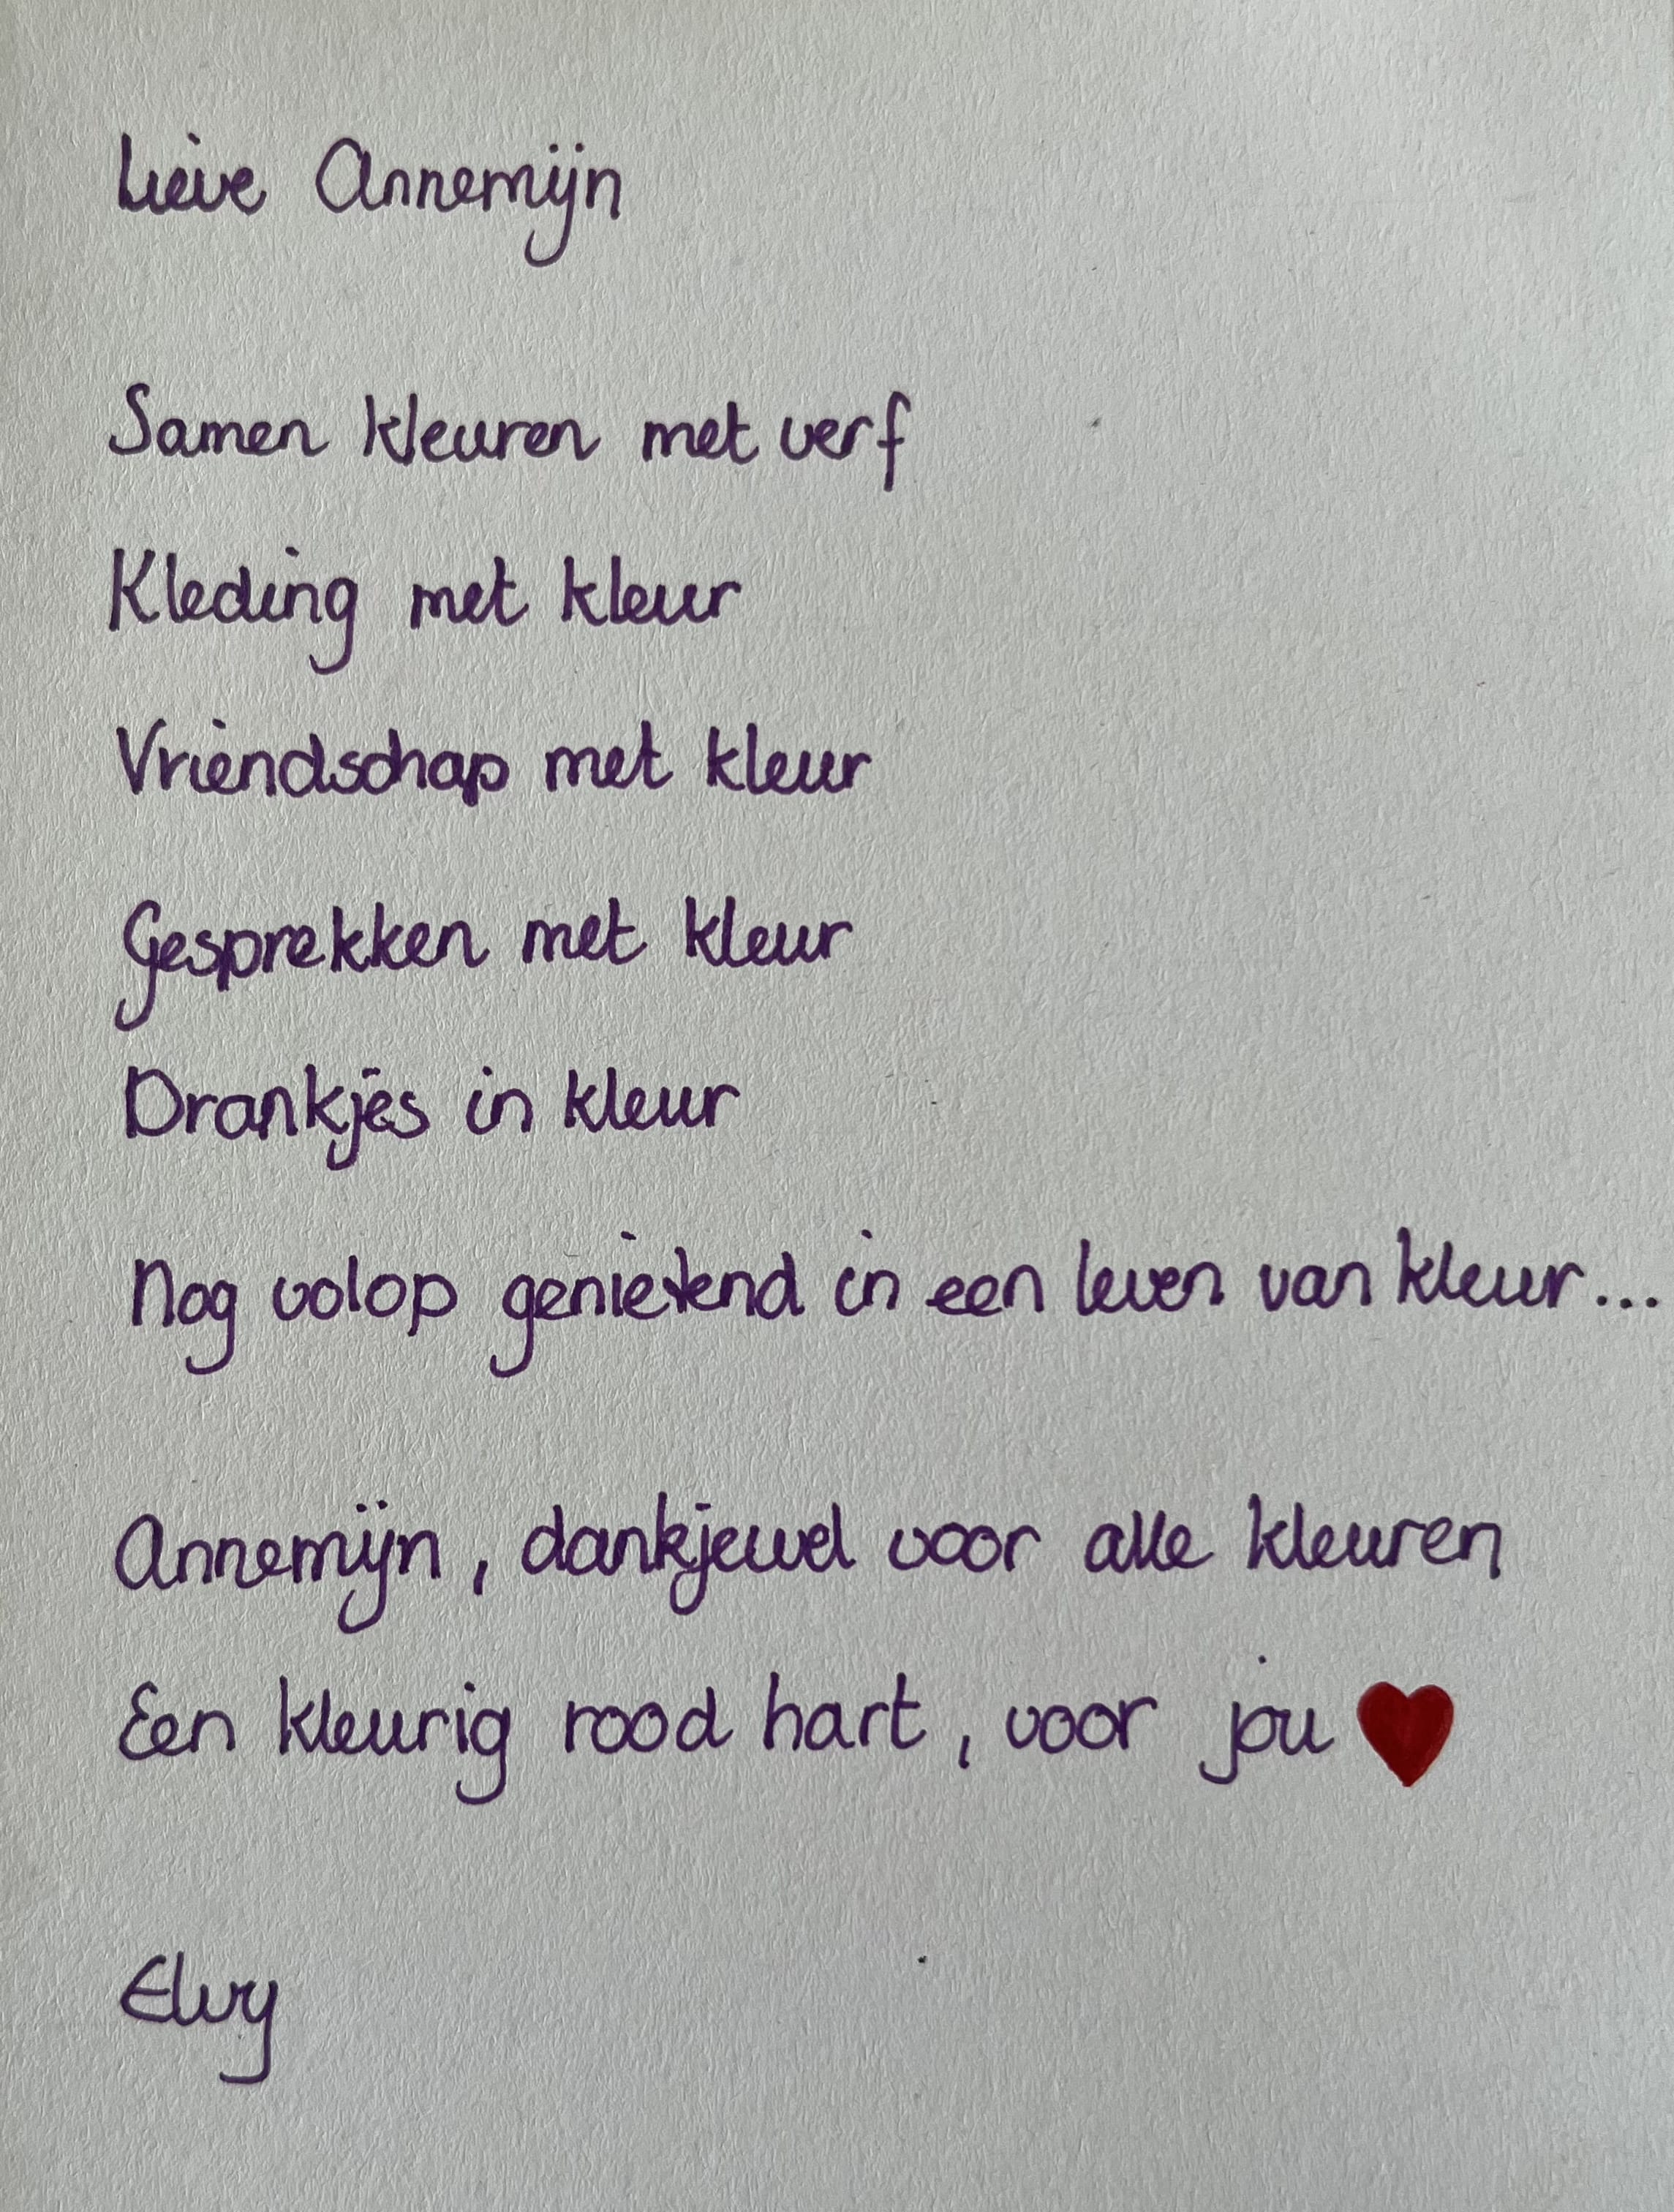 Lieve Annemijn
Samen kleuren met verf
Kleding met kleur
Vriendschap met kleur
Gesprekken met kleur
Drankjes in kleur
Nog volop genietend in een leven van kleur...
Annemijn, dankjewel voor alle kleuren
Een kleurig rood hart, voor jou ❤
Elvy